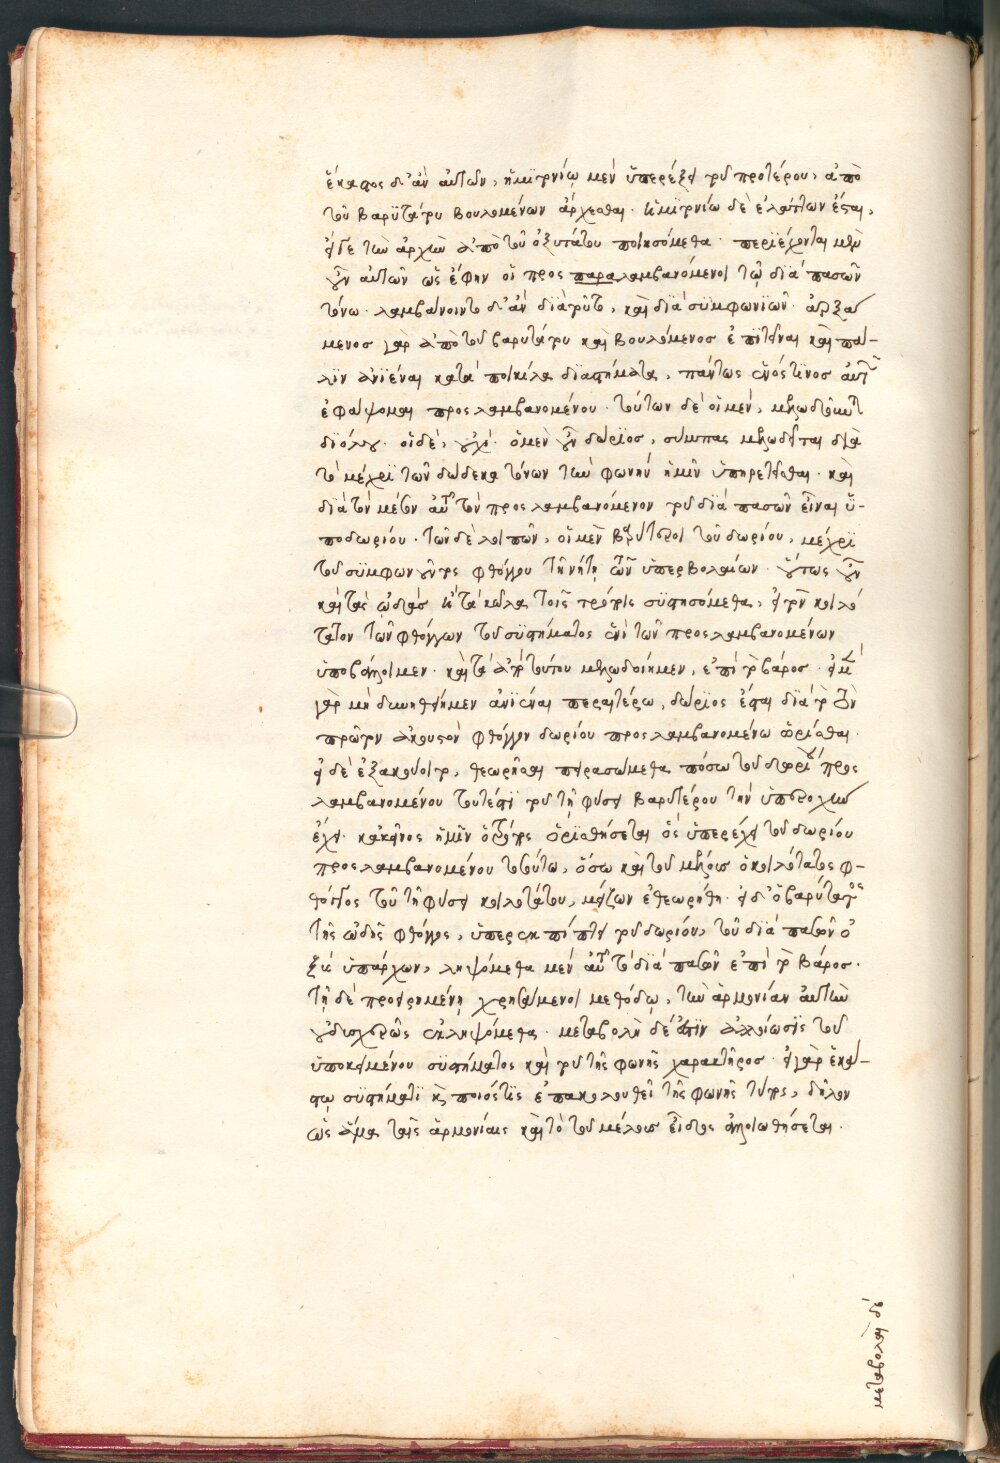 ἕκαστος δ' ἂν αὐτῶν, ἡμϊτονίῳ μὲν ὑπερέξει τοῦ προτέρου, ἀπὸ
τοῦ βαρϋτάτου βουλομένων ἄρχεσθαι. ἡμϊτονίω δὲ ἐλάττων ἔσται,
εἰ δὲ τὴν ἀρχὴν ἀπὸ τοῦ ὀξυτάτου ποιησόμεθα. περϊέχονται μὲν
οὖν αὐτῶν ὡς ἔφην οἵ προς παραλαμβανόμενοι τῷ δϊὰ πασῶν
τόνω. λαμβάνοιντο δ' ἂν δϊὰ τοῦτο, καὶ δϊὰ σϋμφωνϊῶν. ἀρξά
μενος γὰρ ἀπὸ τοῦ βαρυτάτου καὶ βουλόμενος ἐπϊτεῖναι καὶ πά-
λϊν ἀνϊέναι κατὰ ποικίλα δϊαστήματα, πάντως ἑνός τϊνος αὐτῶν
ἐφάψομαι προς λαμβανομένου. τούτων δὲ οἱ μὲν, μελωδοῦνται
δϊόλου. οἱ δὲ, οὐχὶ. ὁ μὲν οὖν δώρϊος, σύμπας μελωδεῖται δϊὰ
τὸ μέχρϊ τῶν δώδεκα τόνων τὴν φωνὴν ἡμῖν ὑπηρετεῖσθαι. καὶ
δϊὰ τὸν μέσον αὐτοῦ τὸν προς λαμβανόμενον τοῦ δϊὰ πασῶν εἶναι ὑ-
ποδωρίου. τῶν δὲ λοιπῶν, οἱ μὲν βαρύτεροι τοῦ δωρίου, μέχρϊ
τοῦ σϋμφωνοῦντος φθόγγου τῇ νήτῃ τῶν ὑπερβολαίων. οὕτως οὖν
καὶ τὰς ᾠδὰς καὶ τὰ κῶλα τοῖς τρόποις σϋστησόμεθα, εἰ τὸν κοιλό
τατον τῶν φθόγγων τοῦ σϋστήματος ἑνὶ τῶν προς λαμβανομένων
ὑποβάλοιμεν. καὶ τὰ ἀπὸ τούτου μελωδοίημεν, ἐπὶ τὸ βάρος. εἰ μὲν
γὰρ μὴ δυνηθείημεν ἀνϊέναι περαιτέρω, δώρϊος ἔσται δϊὰ τὸ τὸν
πρῶτον ἀκουστὸν φθόγγον δωρίου προς λαμβανομένω ὁρίσθαι.
εἰ δὲ ἐξακούοιτο, θεωρῆσαι πειρασώμεθα πόσω τοῦ δωρίου προς
λαμβανομένου τουτέστι τοῦ τῇ φύσει βαρυτέρου τὴν ὑπεροχὴν
ἔχει. κακεῖνος ἡμῖν ὁ τρόπος ὁρϊσθήσεται ὃς ὑπερέχει τοῦ δωρίου
προς λαμβανομένου τοσούτω, ὅσω καὶ τοῦ μέλους ὁ κοιλότατος φ-
θόγγος τοῦ τῇ φύσει κοιλοτάτου, μείζων ἐθεωρήθη. εἰ δ' ὁ βαρύτατος
τῆς ᾠδῆς φθόγγος, ὑπερεκπίπτει τοῦ δωρίου, τοῦ δϊὰ πασῶν ὀ
ξὺς ὑπάρχων, ληψόμεθα μὲν αὐτοῦ τὸ δϊὰ πασῶν ἐπὶ τὸ βάρος.
τῇ δὲ προειρημένῃ χρησάμενοι μεθόδῳ, τὴν ἁρμονίαν αὐτὴν
οὐ δυσχερῶς ἐκληψόμεθα. μεταβολὴ δέ ἐστϊν ἀλλοίωσϊς τοῦ
ὑποκειμένου σϋστήματος καὶ τοῦ τῆς φωνῆς χαρακτῆρος. εἰ γὰρ ἑκά-
στῳ σϋστήματϊ καὶ ποιότϊς ἐπακολουθεῖ τῆς φωνῆς τύπος, δῆλον
ὡς ἅμα ταῖς ἁρμονίαις καὶ τὸ τοῦ μέλους εἶδος ἀλλοιωθήσεται.
μεταβολὴ δέ